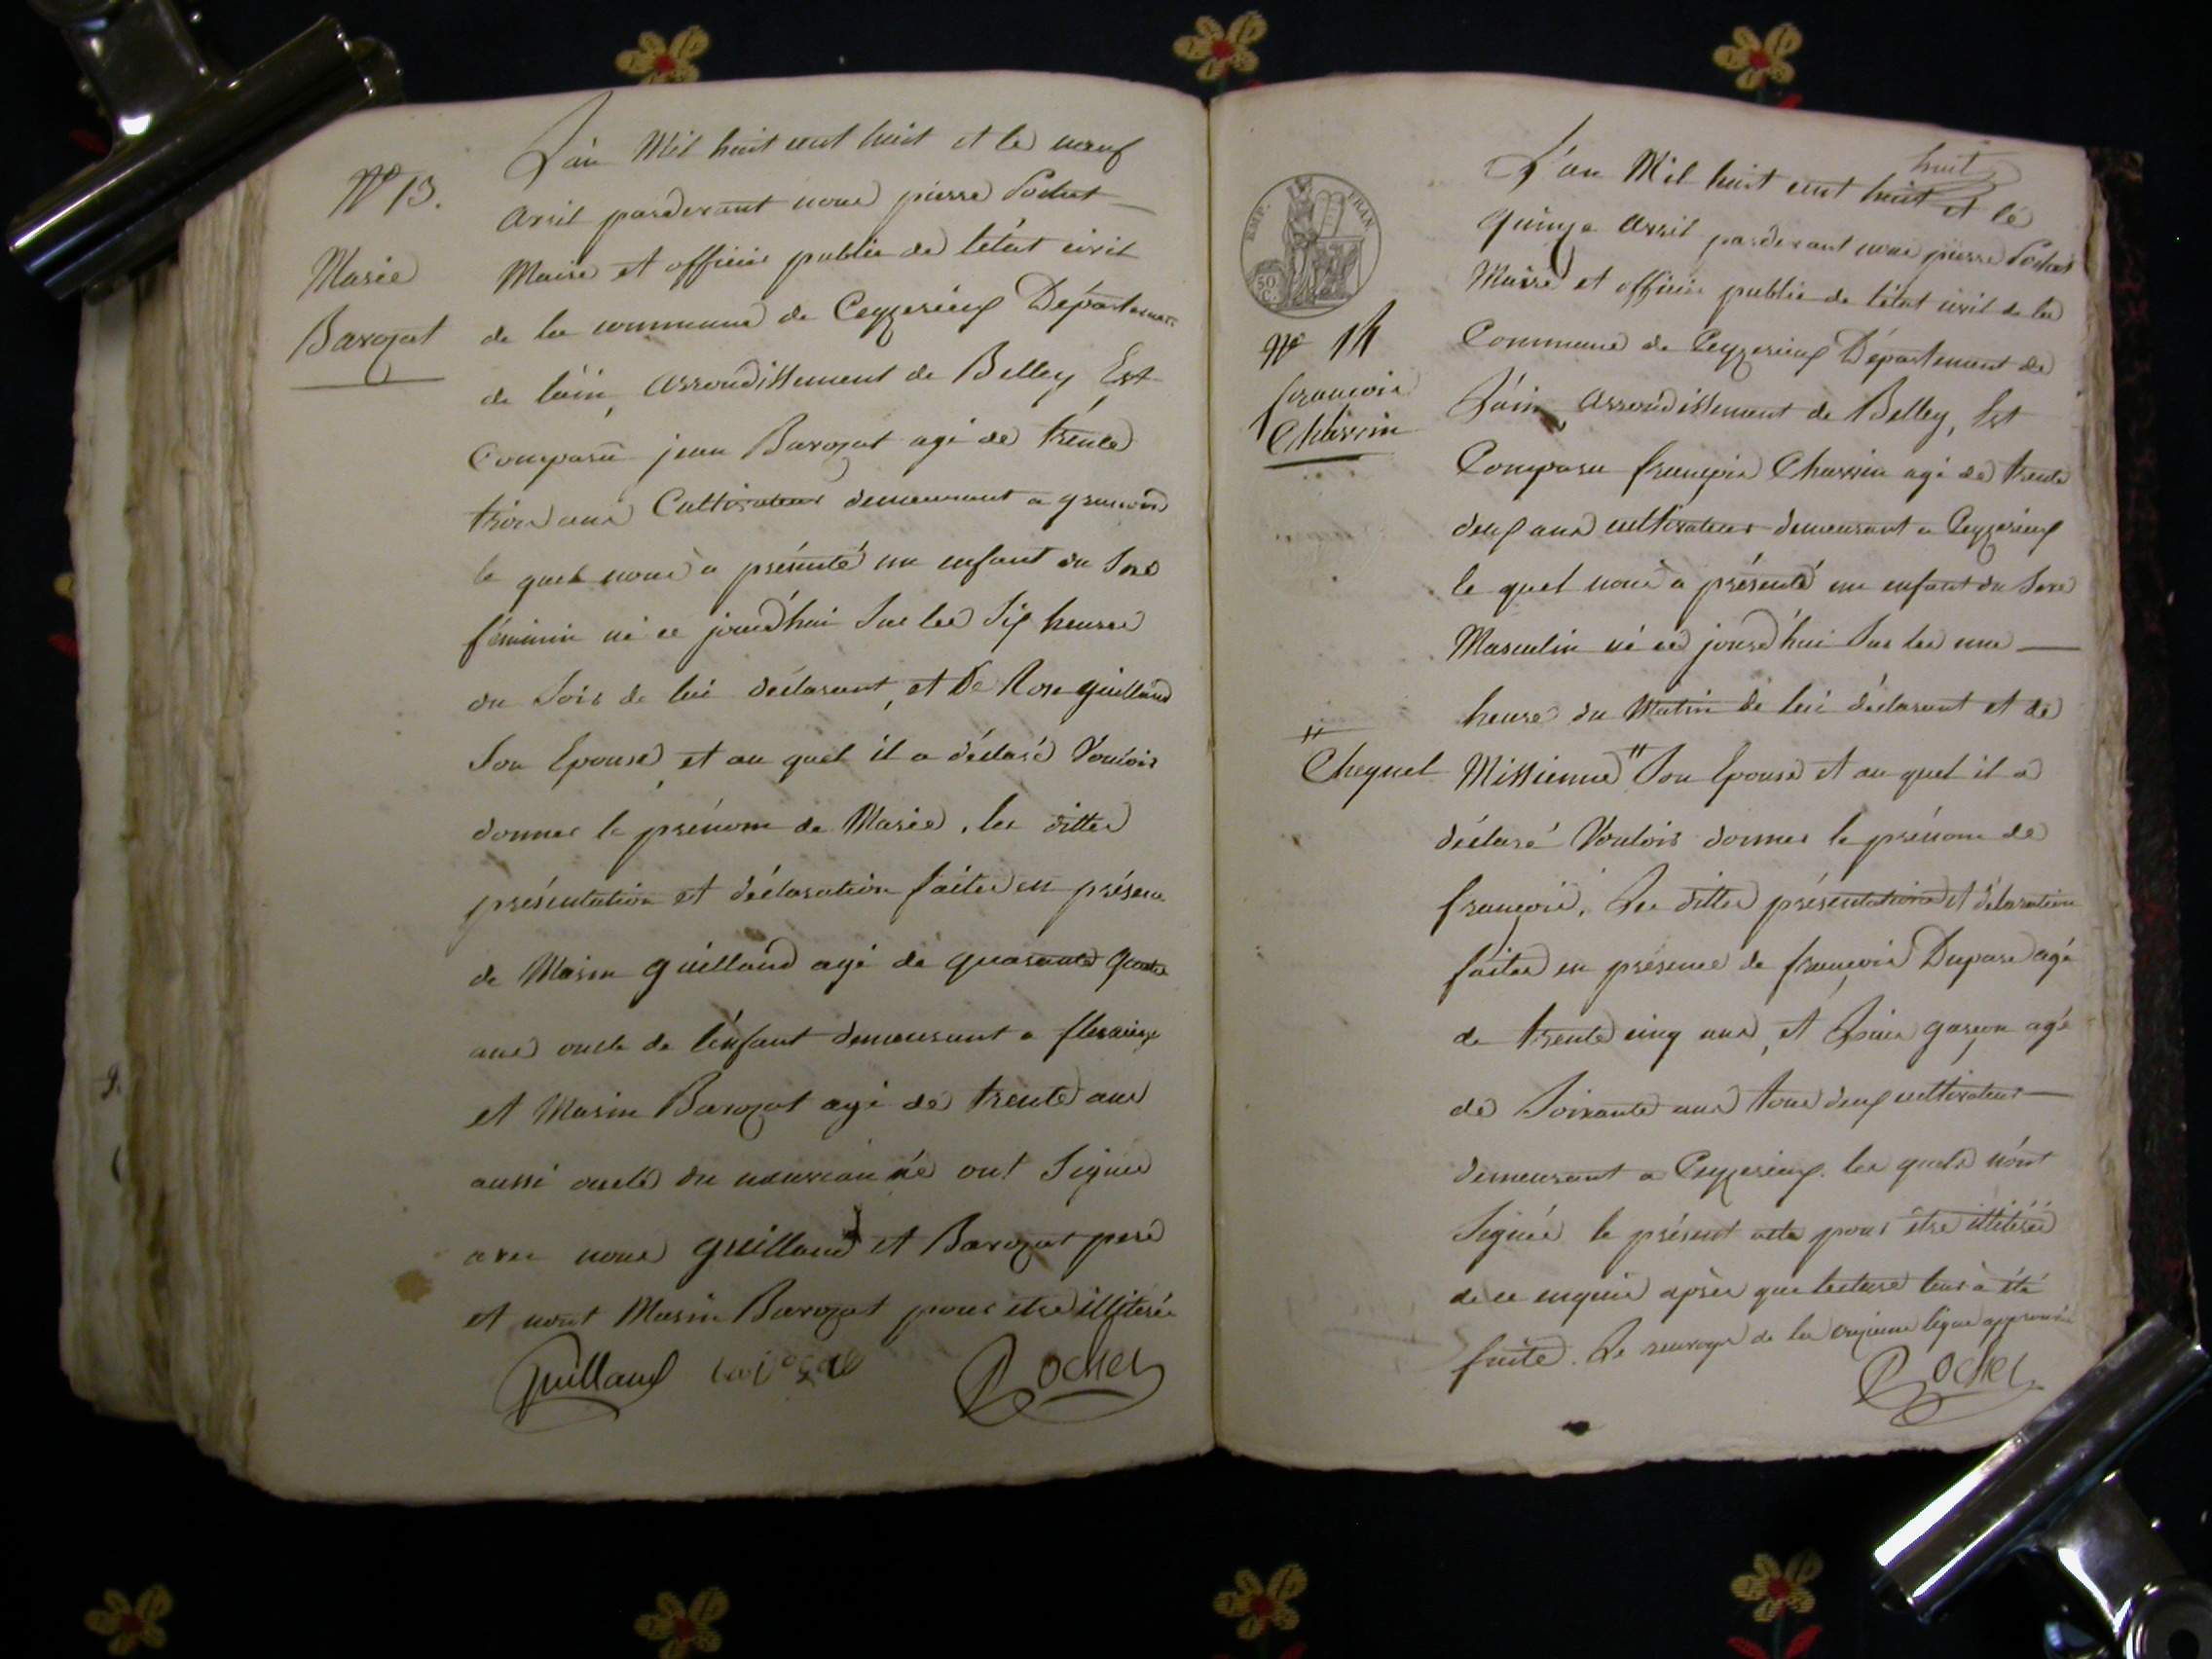 N° 13.
Marie
Barozat
L'an Mil huit cent huit et le neuf
avril pardevant nous pierre Pochet
Maire et officier public de l'état civil
de la commune de Ceyzerieux Département
de l'ain, arrondissement de Belley, Est
Comparu jean Barozat agé de trente
trois ans Cultivateur demeurant a
le quel nous a présenté un enfant du Sexe
féminin né ce jourd'hui Sur les Six heures
du Soir de lui déclarant, et De Rose guilland
Son Epouse, et au quel il a déclaré Vouloir
donner le prénom de Marie, les dittes
présentation et déclaration faites en présence
de Marin guilland agé de quarante quatre
ans oncle de l'enfant demeurant a flaxieux
et Marin Barozat agé de trente ans
aussi oncle du nouveau né ont Signés
avec nous guilland et Barozat pere
et nont Marin Barozat pour etre illiteré
Guilland Barozat Pochet
EMP. FRAN.
50 C.
N° 14
françois
Charvin
#
Cheynel
huit
L'an Mil huit cent huit et le
quinze avril pardevant nous pierre Pochet
Maire et officier public de l'état civil de la
Commune de Ceyzerieux Département de
L'ain, arrondissement de Belley, Est
Comparu françois Charvin agé de trente
deux ans cultivateur demeurant a Ceyzerieux
le quel nous a présenté un enfant du Sexe
Masculin né ce jourd'hui Sur les une
heure du Matin de lui déclarant et de
Missienne # Son Epouse et au quel il a
déclaré Vouloir donner le prénom de
françois. Les dittes présentation et déclaration
faites en présence de françois Duparc agé
de trente cinq ans, et Louis garçon agé
de Soixante ans tous deux cultivateurs
demeurant a Ceyzerieux. les quels n'ont
Signés le présent acte pour être illitérés
de ce enquis après que lecture leur à été
faite. Le renvoye de la onzieme ligne approuvé
Pochet